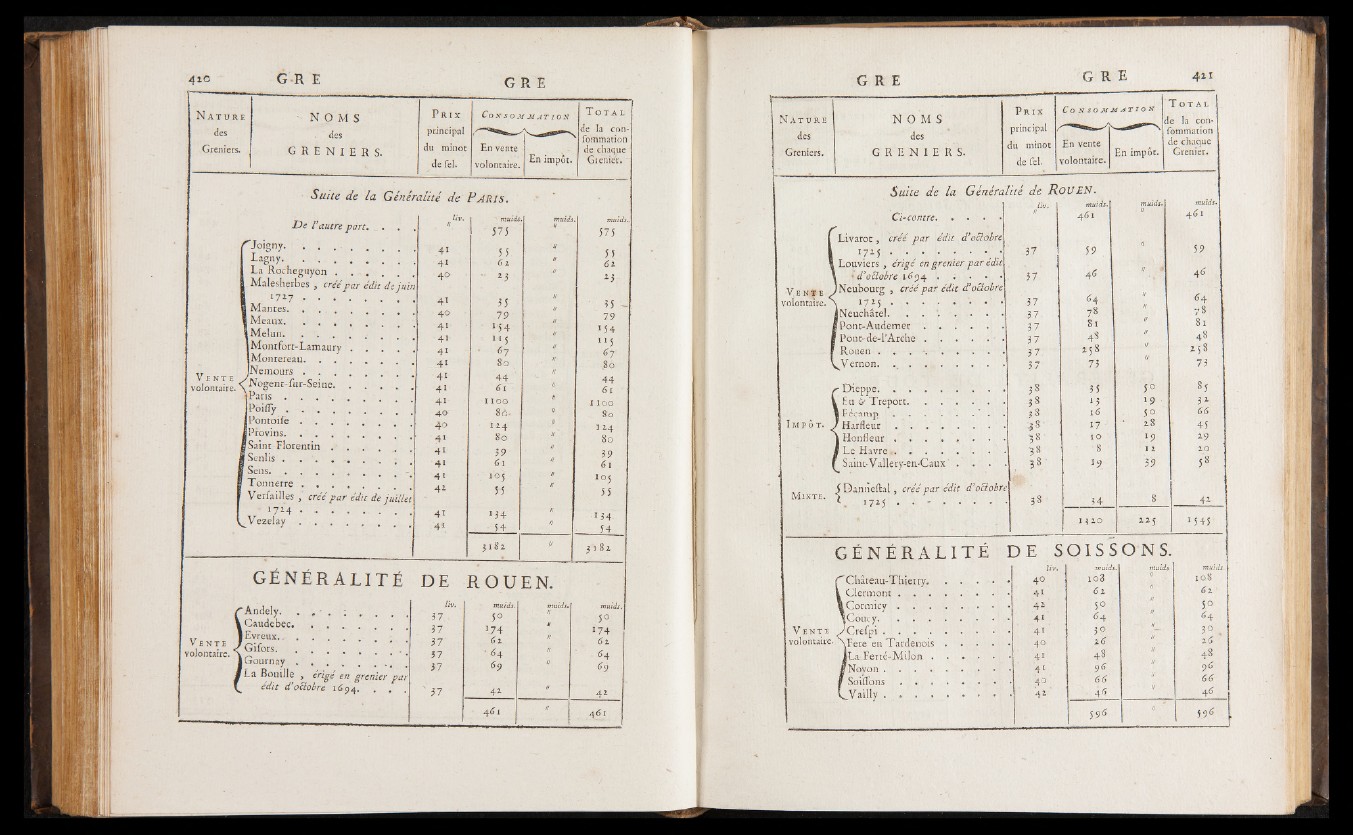 410 G R E G R E
NATURE des Greniers. NOMS des GRENIERS. PRIX principal du minot de sel. CONSOMMATION En vente volontaire. En impôt. TOTAL de la consommation de chaque Grenier.
Suite de la Généralité de PARIS.
liv. muids. muids. muids.
De l'autre part. . . . " 575 " 575
VENTE volontaire.
Joigny. 41 55 " 55
Lagny. 41 62 " 62
La Rocheguyon 40 23 " 23
Malesherbes , créé par édit de juin
1717 41 35 " 35
Mantes. 40 79 " 79
Meaux. 41 154 " 154
Melun. 41 115 " 115
Montfort-Lamaury 41 67 " 67
Montereau. 41 80 " 80
Nemours 41 44 " 44
Nogent-sur-Seine. 41 61 " 61
Paris 41 1100 " 1100
Poissy 40 80 " 80
Pontoise 40 124 " 124
Provins. 41 80 " 80
Saint-Florentin 41 39 " 39
Senlis 41 61 " 61
Sens. 41 105 " 105
Tonnerre 42 55 " 55
Versailles , créé par édit de juillet
1724 41 134 " 134
Vezelay 41 54 " 54
3182 " 3182
GÉNÉRALITÉ DE ROUEN.
liv. muids. muids. muids.
VENTE volontaire.
Andely. 37 50 " 50
Caudebec. 37 174 " 174
Evreux. 37 62 " 62
Gisors. 37 64 " 64
Gournay 37 69 " 69
La Bouille , érigé en grenier par
édit d'octobre 1694. 37 42 " 42
461 " 461
G R E G R E 421
NATURE des Greniers. NOMS des GRENIERS. PRIX principal du minot de sel. CONSOMMATION En vente volontaire. En impôt. TOTAL de la consommation de chaque Grenier.
Suite de la Généralité de ROUEN.
liv. muids. muids. muids.
Ci-contre. . . . . " 461 " 461
VENTE volontaire.
Livarot , créé par édit d'octobre
1725 37 59 " 59
Louviers , érigé en grenier par édit
d'octobre 1694 37 46 " 46
Neubourg , créé par édit d'octobre
1725 37 64 " 64
Neuchâtel. 37 78 " 78
Pont-Audemer 37 81 " 81
Pont-de-l'Arche 37 48 " 48
Rouen 37 258 " 258
Vernon. 37 73 " 73
IMPÔT.
Dieppe. 38 35 50 85
Eu & Treport. 38 13 19 32
Fécamp 38 16 50 66
Harfleur 38 17 28 45
Honfleur 38 10 19 29
Le Havre 38 8 12 20
Saint-Vallery-en-Caux 38 19 39 58
MIXTE.
Danniestal , créé par édit d'octobre
1725 38 34 8 42
1320 225 1545
GÉNÉRALITÉ DE SOISSONS.
liv. muids. muids muids
VENTE volontaire.
Château-Thierry. 40 108 " 108
Clermont 41 62 " 62
Cormicy 42 50 " 50
Coucy. 41 64 " 64
Crespi 41 30 " 30
Fere en Tardenois 40 26 " 26
La Ferté-Milon 41 48 " 48
Noyon 41 96 " 96
Soissons 40 66 " 66
Vailly 42 46 " 46
596 " 596